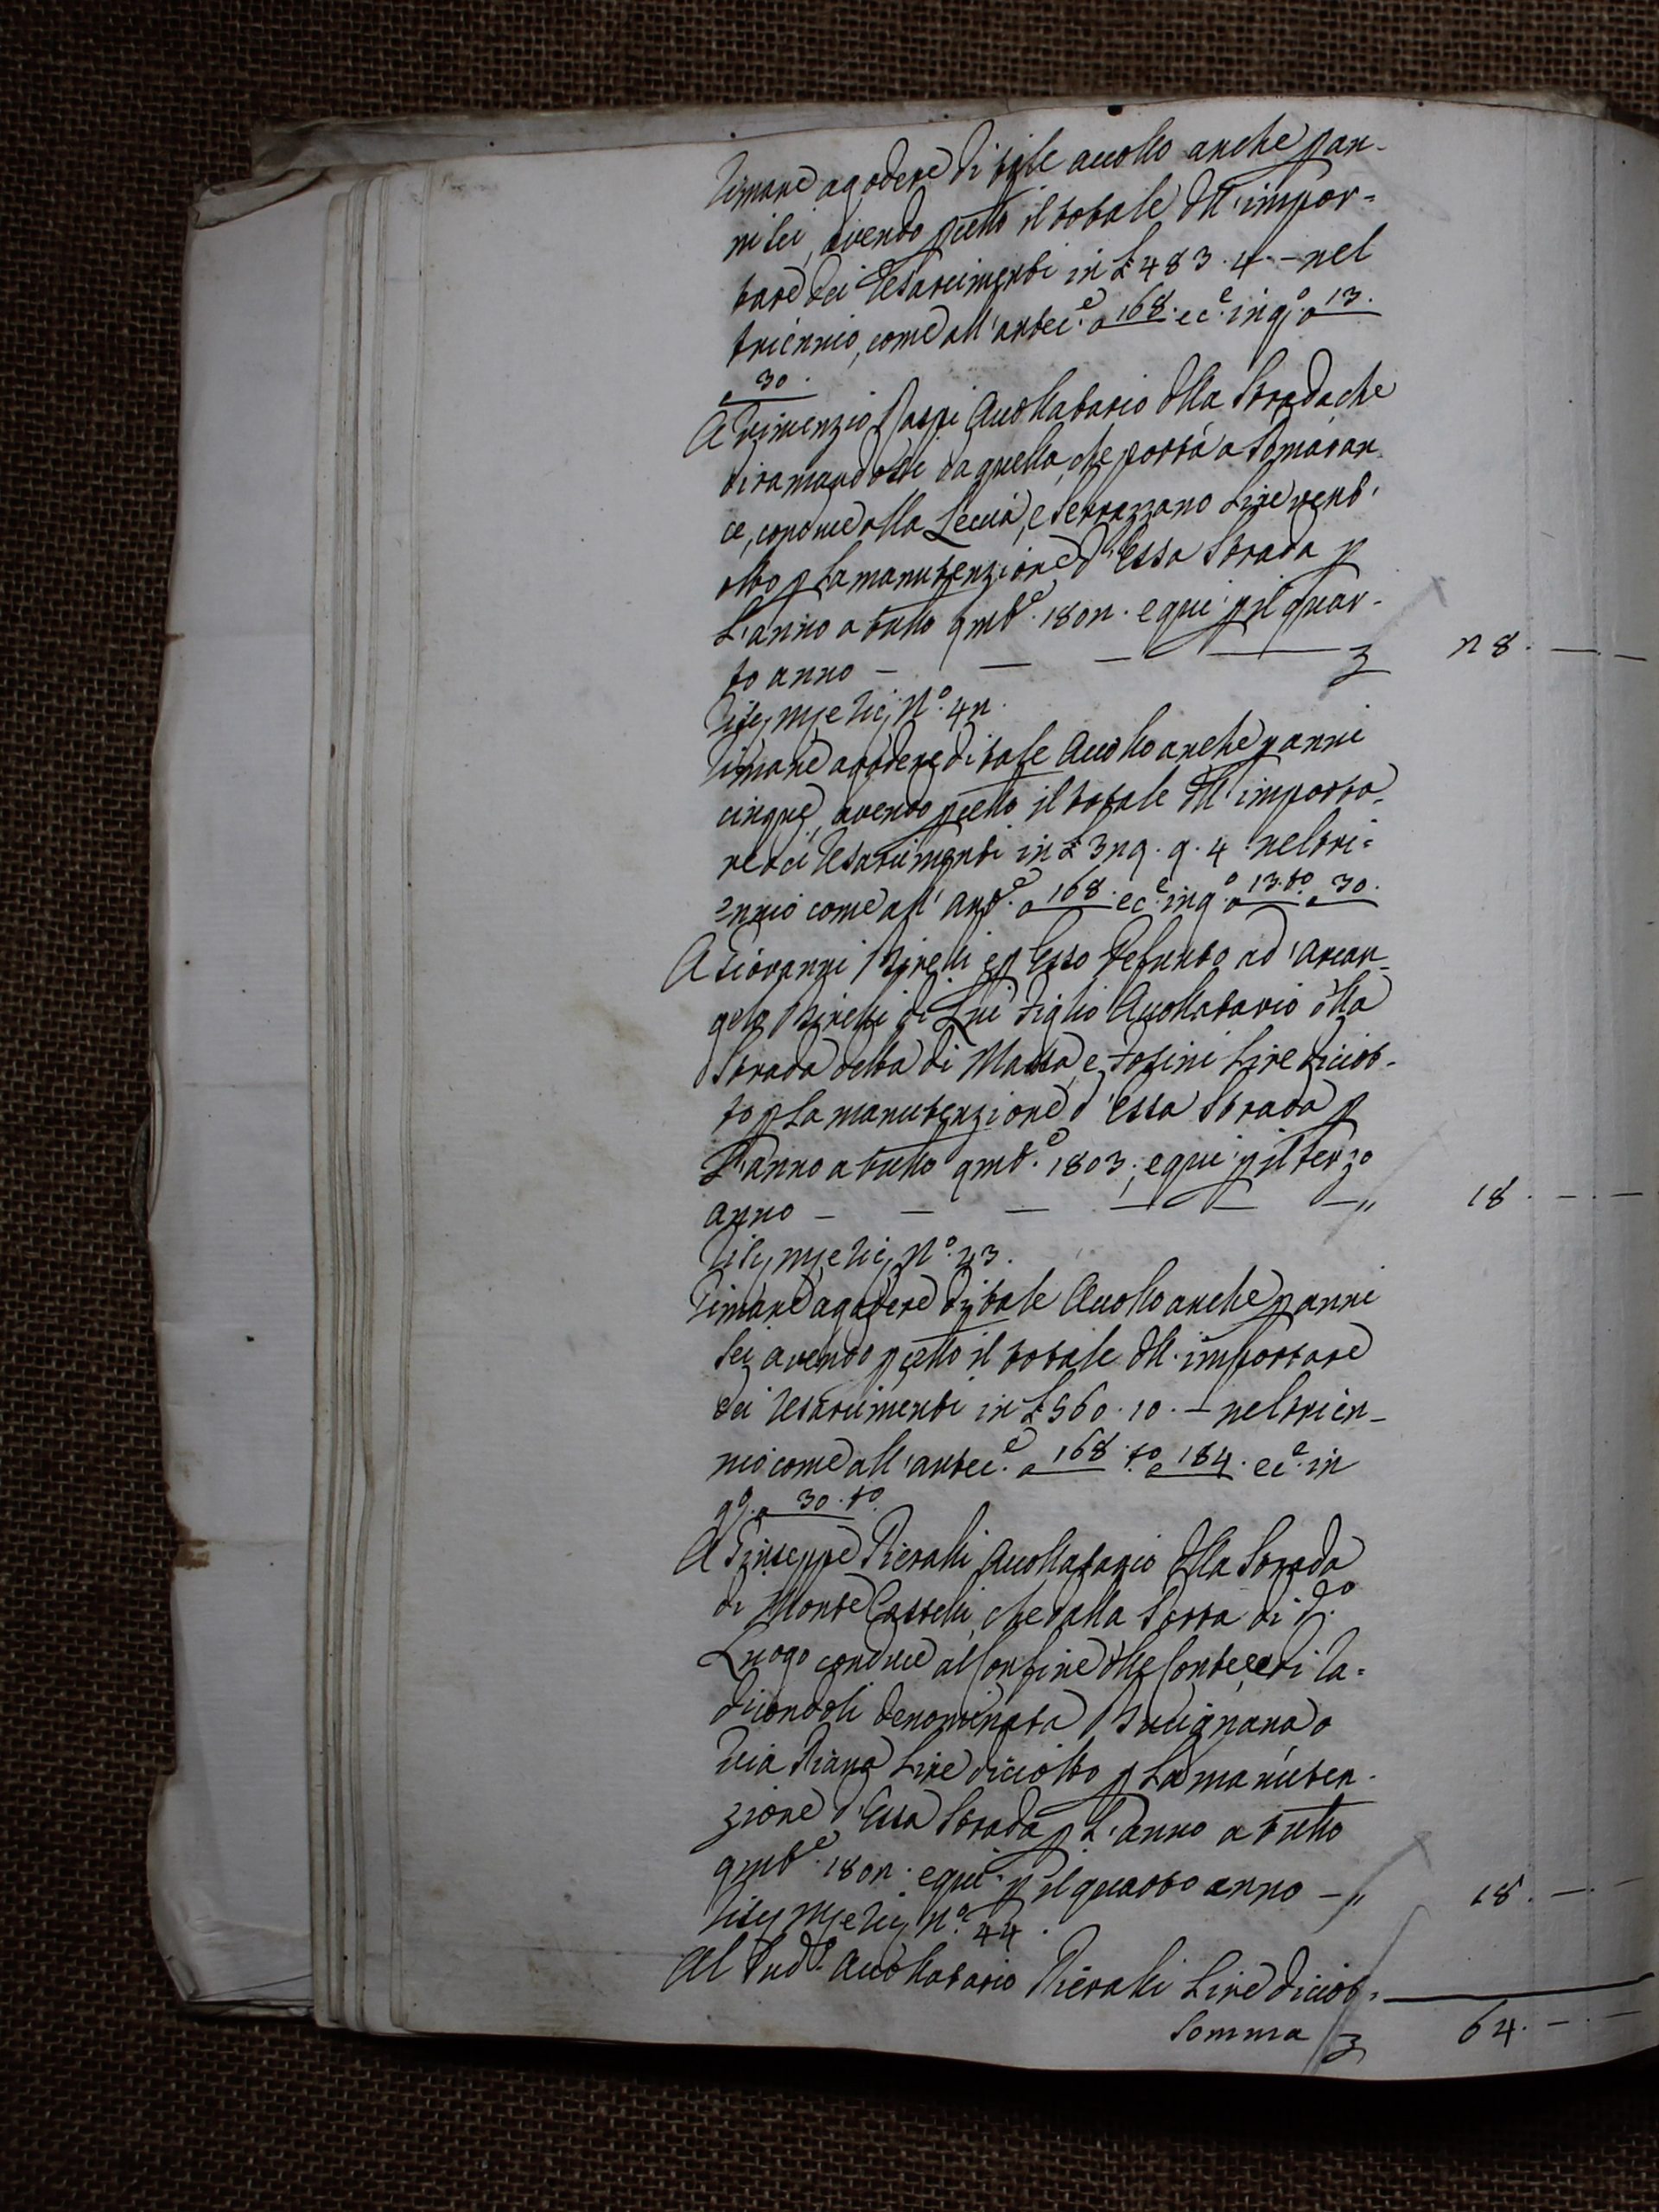 Rimane a godere di tale accollo anche p an-
ni sei, avendo p cetto il totale dll'impor=
tare dei Resarcimenti in £ 483. 4. - nel
triennio, come all'antec.e a 168. ec.e in q.o a 13.
e 30.
A Vincenzio Accollatario dlla Strada che
diramandosi da quella, che porta a Pomaran-
ce, conduce alla Leccia, e Serrazzano Lire vent'
otto p la manutenzione d'Essa Strada p
L'anno a tutto qmb.e 1802. e qui p il quar-
to anno - — — —— 3 28. — . —
Rise, M, e Ric, N.o 42.
Rimane a godere di tale Accollo anche p anni
cinque, avendo p cetto il totale dll'importa-
re dei Resarcimenti in £ 329. 9. 4. nel tri=
ennio come all'ant.e a 168. ec.e in q.o a 13. to. e 30.
A Giovanni Birelli e p Esso Defunto ad Arcan-
gelo Birelli di Lui Figlio Accollatario dlla
Strada detta di Massa, e Fosini Lire diciot-
to p La manutenzione d'Essa Strada p
L'anno a tutto qmb.e 1803; e qui p il terzo
anno - — — — — —" 18. — . —
Rise, M, e Ric, N.o 43.
Rimane a godere di tale Accollo anche p anni
sei avendo p cetto il totale dll'importare
dei Resarcimenti in £ 560. 10. - nel trien-
nio come all'antec.e a 168. to. e 184. ec.e in
q.o a 30. to.
A Giuseppe Pieralli Accollatario dlla Strada
di Monte Castelli, che dalla Porta di d.o
Luogo conduce al Confine dlle Conteee di Ra=
dicondoli denominata Bucignana o
Via Piana Lire diciotto p La manuten-
zione d'Essa Strada p L'anno a tutto
qmb.e 1802. e qui p il quarto anno -" 18. — . —
Rise, M, e Ric, N.o 44.
Al Sud.o Accollatario Pieralli Lire diciot=
Somma 3 64. — . —